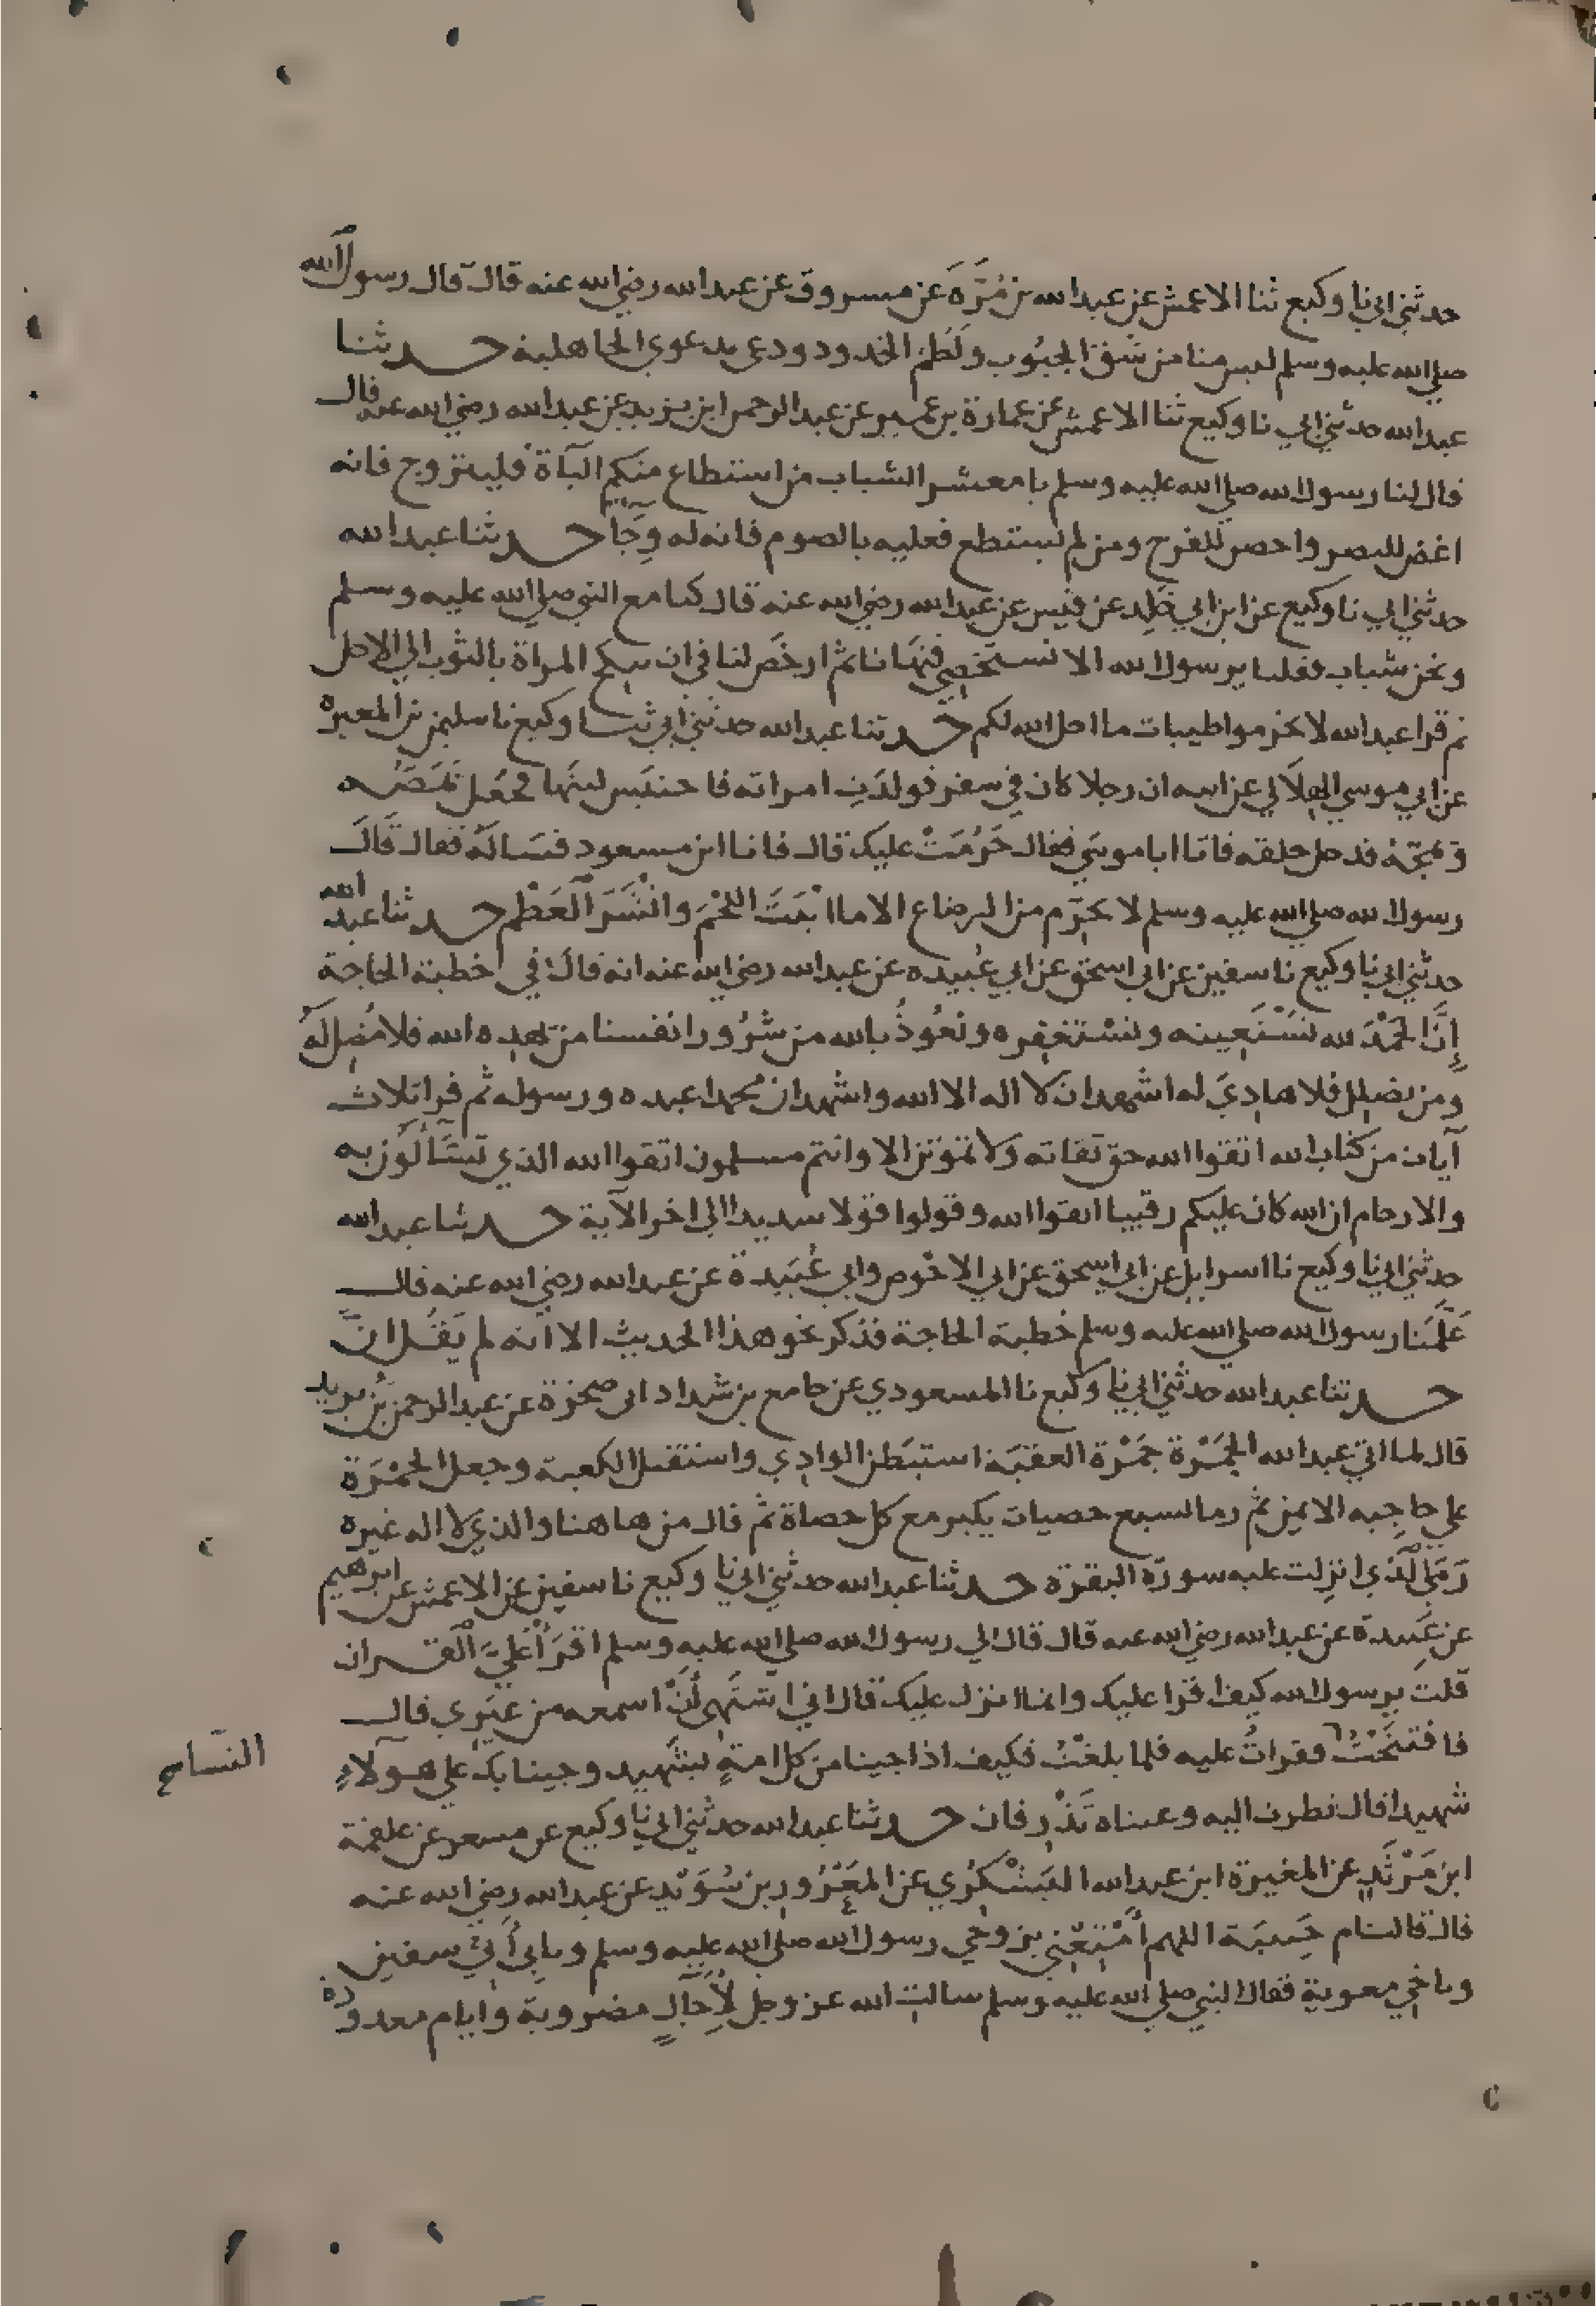 حدثني ابي نا وكيع ثنا الاعمش عن عبدالله بن مُرَّةَ عن مسروق عن عبدالله رضي الله عنه قال قال رسول الله
صلى الله عليه وسلم ليس منا من شق الجيُوب ولَطَمَ الخدود ودعى بدعوى الجاهلية حدثنا
عبدالله حدثني ابي نا وكيع ثنا الاعمش عن عمارة بن عمير عن عبدالرحمن ابن يزيد عن عبدالله رضي الله عنه قال
قال لنا رسول الله صلى الله عليه وسلم يا معشر الشباب من استطاع منكم البآة فليتزوج فانه
اغض للبصر واحصن للفرج ومن لم يستطع فعليه بالصوم فانه له وِجَا حدثنا عبدالله
حدثني ابي نا وكيع عن ابن ابي خَلِد عن قيس عن عبدالله رضي الله عنه قال كنا مع النبي صلى الله عليه وسلم
ونحن شباب فقلنا يرسول الله الا نستخصِي فنهَانا ثم ارخَص لنا في ان ننكح المراة بالثوب الى الاجل
ثم قرا عبدالله لا تحرموا طيبات ما احل الله لكم حدثنا عبدالله حدثني ابي ثنا وكيع نا سليمن بن المغيره
عن ابي موسى الهلَالي عن ابيه ان رجلا كان في سفر فولدَتِ امراته فاحتبَس لبنُها فجَعل يَمُصُّه
وَيَمجّهُ فدخل حلقه فاتا ابا موسَى فقال حَرُمَتْ عليك قال فاتا ابن مسعود فسَالَهُ فقال قَالَ
رسول الله صلى الله عليه وسلم لا يحرّم من الرضاع الا ما انْبَتَ اللحْمَ وانْشَرَ الْعَظْم حدثنا عبدالله
حدثني ابي نا وكيع نا سفين عن ابي اسحق عن ابي عُبيده عن عبدالله رضي الله عنه انه قال في خطبة الحاجة
إِنَّ الحَمْدَ لله نَسْتَعِينه ونسْتغفِره ونَعُوذُ بالله من شرُور انفسنا من يَهدِه الله فلا مُضِل لَهُ
ومن يضلِل فلا هادِيَ له اشهد ان لا اله الا الله واشهد ان محمدا عبده ورسوله ثم قرا ثلاث
آيات من كتاب الله اتقوا الله حق تقاته وَلا تموتن الا وانتم مسلمون اتقوا الله الذي تَسَّآلُونَ به
والارحام ان الله كان عليكم رقيبا اتقوا الله وقولوا قولا سديدا الى اخر الآية حدثنا عبدالله
حدثني ابي نا وكيع نا اسراييل عن ابي اسحق عن ابي الاحْوص وابي عُبَيدة عن عبدالله رضي الله عنه قال
عَلَّمَنا رسول الله صلى الله عليه وسلم خُطبة الحاجة فذكر نحو هذا الحديث الا انه لم يَقُل انَّ
حدثنا عبدالله حدثني ابي نا وكيع نا المسعودي عن جامع بن شداد ابي صخرة عن عبدالرحمن بْن يزيد
قال لما اتى عبدالله الجَمْرَة جَمْرَة العقبَة استبَطن الوادِي واستقبل الكعبة وجعل الجمْرَة
على حاجِبه الايمن ثم رما بسبع حصيات يكبر مع كل حصاة ثم قال من هاهنا والذي لا اله غيره
رَمَى الَّذي انزِلت عليه سورة البقرة حدثنا عبدالله حدثني ابي نا وكيع نا سفين عن الاعمش عن ابرهيم
عن عَبيدة عن عبدالله رضي الله عنه قال قال لي رسول الله صلى الله عليه وسلم اقرَأْ عَليَّ القران
قلت يرسول الله كيف اقرا عليك وانما انزل عليك قال اني اشتَهي أَنْ اسمعه من غيري قال
فافْتتحْتُ فقراتُ عليه فلما بلغْتُ فكيف اذا جينا من كل امةٍ بشَهِيد وجينا بك على هولآءِ
شهيدا قال نظرت اليه وعيناه تَذْرِفان حدثنا عبدالله حدثني ابي نا وكيع عن مسعر عن علقمة
النسآ ح
ابن مَرْثَدٍ عن المغيرة ابن عبدالله اليَشْكُرِي عن المَعْرُورِ بن سُوَيْدٍ عن عبدالله رضي الله عنه
قال قالت ام حَبيبَة اللهم أَمْتِعْنِي بزوجي رسول الله صلى الله عليه وسلم وبابي أَبِي سفين
وباخي معوية فقال النبي صلى الله عليه وسلم سالتِ الله عز وجل لآجَالٍ مضروبة وايام معدودة